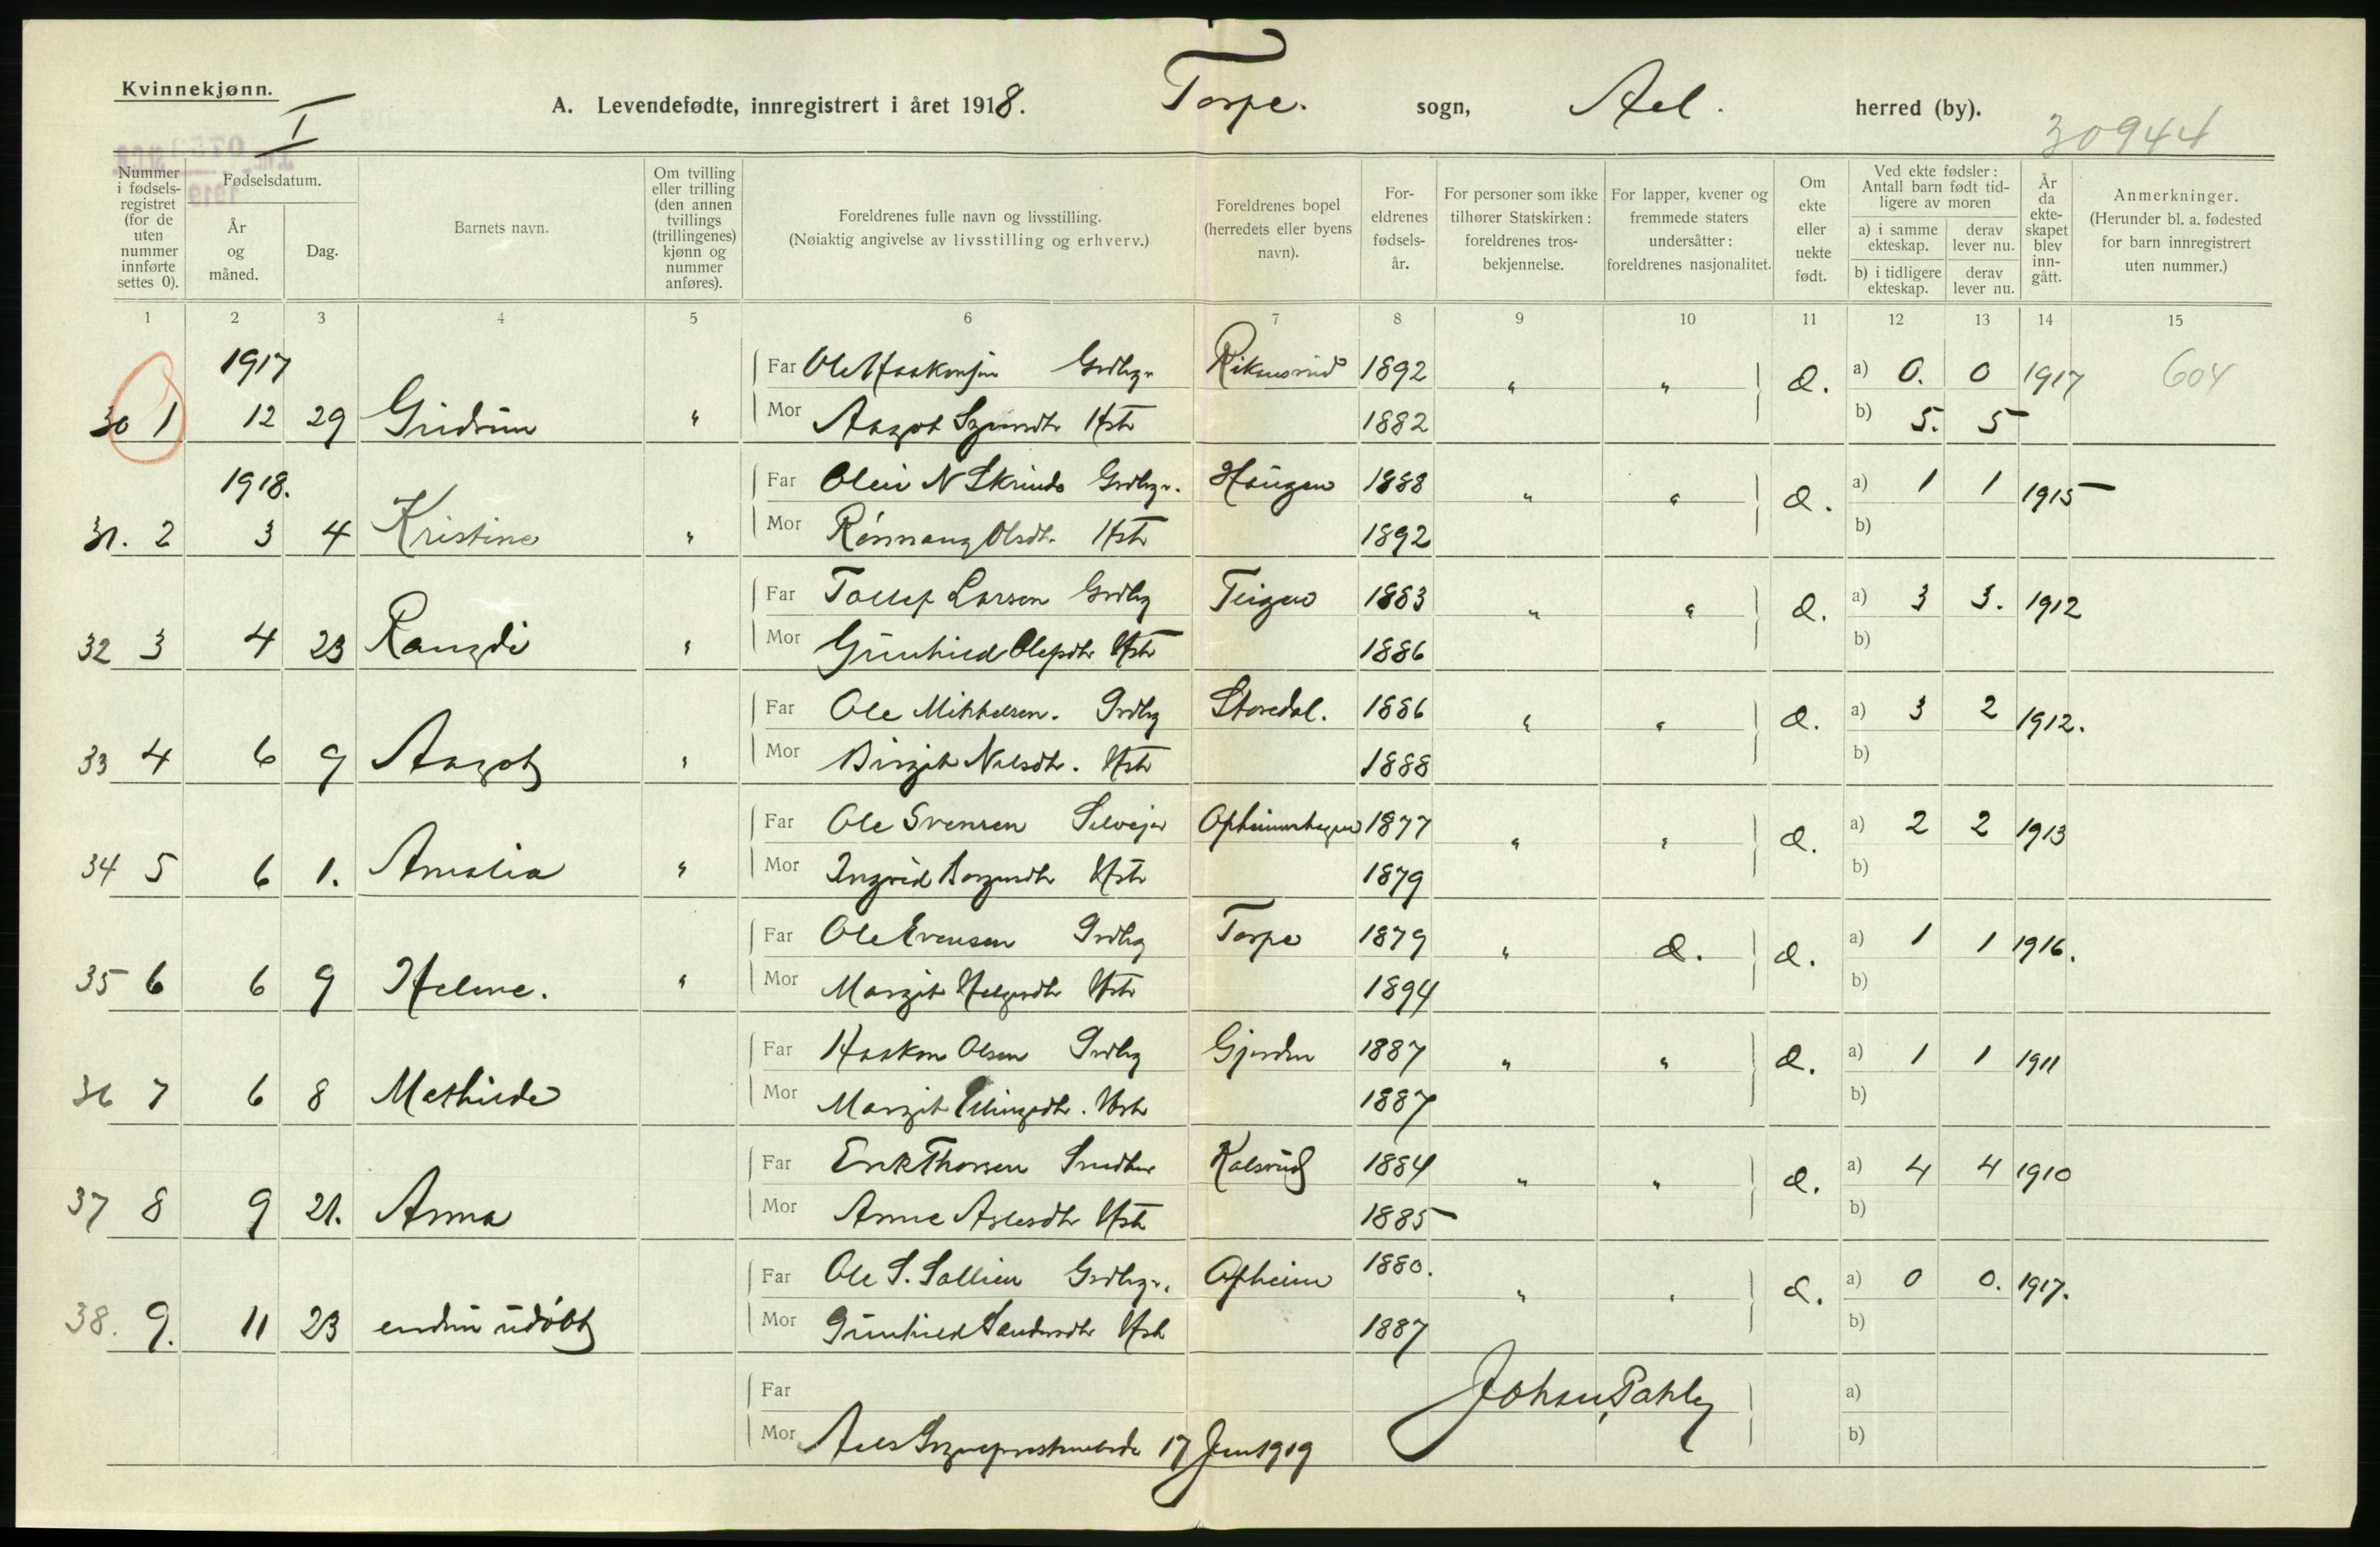 Kvinnekjønn.
I
A. Levendefødte, innregistrert i året 1918. Torpe. sogn, Ael. herred (by).
30944
Nummer i fødsels-registret (for de uten nummer innførte settes 0).
Fødselsdatum.
År og måned.
Dag.
Barnets navn.
Om tvilling eller trilling (den annen tvillings (trillingenes) kjønn og nummer anføres).
Foreldrenes fulle navn og livsstilling.
(Nøiaktig angivelse av livsstilling og erhverv.)
Foreldrenes bopel (herredets eller byens navn).
For-eldrenes fødsels-år.
For personer som ikke tilhører Statskirken: foreldrenes tros-bekjennelse.
For lapper, kvener og fremmede staters undersåtter: foreldrenes nasjonalitet.
Om ekte eller uekte født.
Ved ekte fødsler: Antall barn født tid-ligere av moren
a) i samme ekteskap.
derav lever nu.
b) i tidligere ekteskap.
derav lever nu.
År da ekte-skapet blev inn-gått.
Anmerkninger.
(Herunder bl. a. fødested for barn innregistrert uten nummer.)
1 2 3 4 5 6 7 8 9 10 11 12 13 14 15
1917 Far Ole Haakensen Grdbgr 1892 " " a) 0. 0 1917 604
30 1 12 29 Gudrun " Mor Aagot Hstr 1882 b) 5. 5
1918. Far Olein N Skrindo Grdbgr. Haugen 1888 " " a) 1 1 1915
31. 2 3 4 Kristine " Mor Rønnaug Olsdtr. Hstr 1892 b)
Far Tollef Larsen Grdbg Teigen 1883 " " a) 3 3. 1912
32 3 4 23 Rangdi " Mor Gunhild Olefsdtr Hstr 1886 b)
Far Ole Mikkelsen. Grdbg Storedal. 1886 " " a) 3 2 1912.
33 4 6 9 Aagot " Mor Birgit Nilsdtr. Hstr 1888 b)
Far Ole Svensen Selveier Opheimshagen 1877 " " a) 2 2 1913
34 5 6 1. Amalia " Mor Ingrid Hstr 1879 b)
Far Ole Evensen Grdbg Torpe 1879 " a) 1 1 1916.
35 6 6 9 Helene. " Mor Margit Helgesdtr Hstr 1894 b)
Far Haakon Olsen Grdbg Gjerden 1887 " " a) 1 1 1911
36 7 6 8 Mathilde Mor Margit Hstr 1887 b)
Far Erik Thorsen Kalsrud 1884 " " a) 4 4 1910
37 8 9 21. Anna Mor Anne Aslesdtr Hstr 1885 b)
Far Ole S. Sallien Grdbgr. Opheim 1880. " " a) 0 0. 1917.
38. 9. 11 23 endnu udøbt Mor Gunhild Hstr 1887 b)
Far Johan Pahle a)
Mor Aels Sogneprestembede 17 Jan 1919 b)